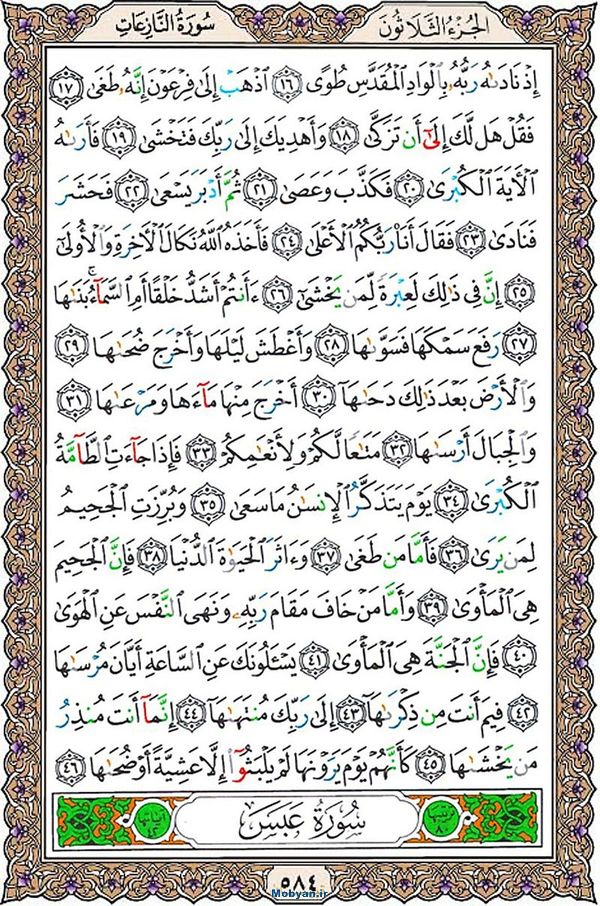 الجُزءُ الثَّلَاثُونَ
سُورَةُ النَّازِعَاتِ
إِذْ نَادَىٰهُ رَبُّهُۥ بِٱلْوَادِ ٱلْمُقَدَّسِ طُوًى ١٦ ٱذْهَبْ إِلَىٰ فِرْعَوْنَ إِنَّهُۥ طَغَىٰ ١٧
فَقُلْ هَل لَّكَ إِلَىٰٓ أَن تَزَكَّىٰ ١٨ وَأَهْدِيَكَ إِلَىٰ رَبِّكَ فَتَخْشَىٰ ١٩ فَأَرَىٰهُ
ٱلْـَٔايَةَ ٱلْكُبْرَىٰ ٢٠ فَكَذَّبَ وَعَصَىٰ ٢١ ثُمَّ أَدْبَرَ يَسْعَىٰ ٢٢ فَحَشَرَ
فَنَادَىٰ ٢٣ فَقَالَ أَنَا۠ رَبُّكُمُ ٱلْأَعْلَىٰ ٢٤ فَأَخَذَهُ ٱللَّهُ نَكَالَ ٱلْـَٔاخِرَةِ وَٱلْأُولَىٰٓ
٢٥ إِنَّ فِى ذَٰلِكَ لَعِبْرَةً لِّمَن يَخْشَىٰٓ ٢٦ ءَأَنتُمْ أَشَدُّ خَلْقًا أَمِ ٱلسَّمَآءُ ۚ بَنَىٰهَا
٢٧ رَفَعَ سَمْكَهَا فَسَوَّىٰهَا ٢٨ وَأَغْطَشَ لَيْلَهَا وَأَخْرَجَ ضُحَىٰهَا ٢٩
وَٱلْأَرْضَ بَعْدَ ذَٰلِكَ دَحَىٰهَآ ٣٠ أَخْرَجَ مِنْهَا مَآءَهَا وَمَرْعَىٰهَا ٣١
وَٱلْجِبَالَ أَرْسَىٰهَا ٣٢ مَتَٰعًا لَّكُمْ وَلِأَنْعَٰمِكُمْ ٣٣ فَإِذَا جَآءَتِ ٱلطَّآمَّةُ
ٱلْكُبْرَىٰ ٣٤ يَوْمَ يَتَذَكَّرُ ٱلْإِنسَٰنُ مَا سَعَىٰ ٣٥ وَبُرِّزَتِ ٱلْجَحِيمُ
لِمَن يَرَىٰ ٣٦ فَأَمَّا مَن طَغَىٰ ٣٧ وَءَاثَرَ ٱلْحَيَوٰةَ ٱلدُّنْيَا ٣٨ فَإِنَّ ٱلْجَحِيمَ
هِىَ ٱلْمَأْوَىٰ ٣٩ وَأَمَّا مَنْ خَافَ مَقَامَ رَبِّهِۦ وَنَهَى ٱلنَّفْسَ عَنِ ٱلْهَوَىٰ
٤٠ فَإِنَّ ٱلْجَنَّةَ هِىَ ٱلْمَأْوَىٰ ٤١ يَسْـَٔلُونَكَ عَنِ ٱلسَّاعَةِ أَيَّانَ مُرْسَىٰهَا
٤٢ فِيمَ أَنتَ مِن ذِكْرَىٰهَآ ٤٣ إِلَىٰ رَبِّكَ مُنتَهَىٰهَآ ٤٤ إِنَّمَآ أَنتَ مُنذِرُ
مَن يَخْشَىٰهَا ٤٥ كَأَنَّهُمْ يَوْمَ يَرَوْنَهَا لَمْ يَلْبَثُوٓا۟ إِلَّا عَشِيَّةً أَوْ ضُحَىٰهَا ٤٦
ترتيبها ٨٠
سُورَةُ عَبَسَ
آياتها ٤٢
٥٨٤
Mobyan.ir